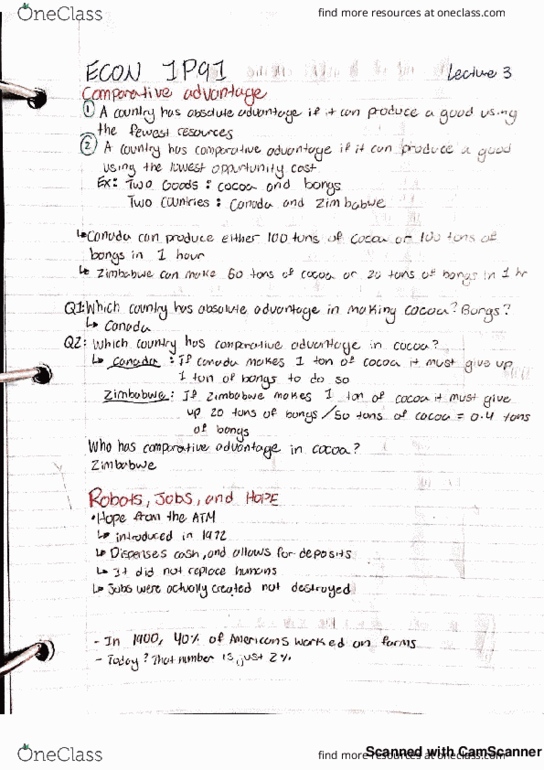 OneClass
find more resources at oneclass.com
ECON 1P91
Lecture 3
Comparative advantage
① A country has absolute advantage if it can produce a good using
the fewest resources
② A country has comparative advantage if it can produce a good
using the lowest opportunity cost
Ex: Two Goods : cocoa and bongs
Two Countries : Canada and Zimbabwe
↳ Canada can produce either 100 tons of cocoa or 100 tons of
bongs in 1 hour
↳ Zimbabwe can make 50 tons of cocoa or 20 tons of bongs in 1 hr
Q1: Which country has absolute advantage in making cocoa? Bongs?
↳ Canada
Q2: Which country has comparative advantage in cocoa?
↳ Canada : If Canada makes 1 ton of cocoa it must give up
1 ton of bongs to do so
Zimbabwe : If Zimbabwe makes 1 ton of cocoa it must give
up 20 tons of bongs / 50 tons of cocoa = 0.4 tons
of bongs
Who has comparative advantage in cocoa?
Zimbabwe
Robots, Jobs, and HOPE
• Hope from the ATM
↳ introduced in 1972
↳ Dispenses cash, and allows for deposits
↳ It did not replace humans
↳ Jobs were actually created not destroyed
- In 1900, 40% of Americans worked on farms
- Today? That number is just 2%
OneClass
find more resources at oneclass.com
Scanned with CamScanner